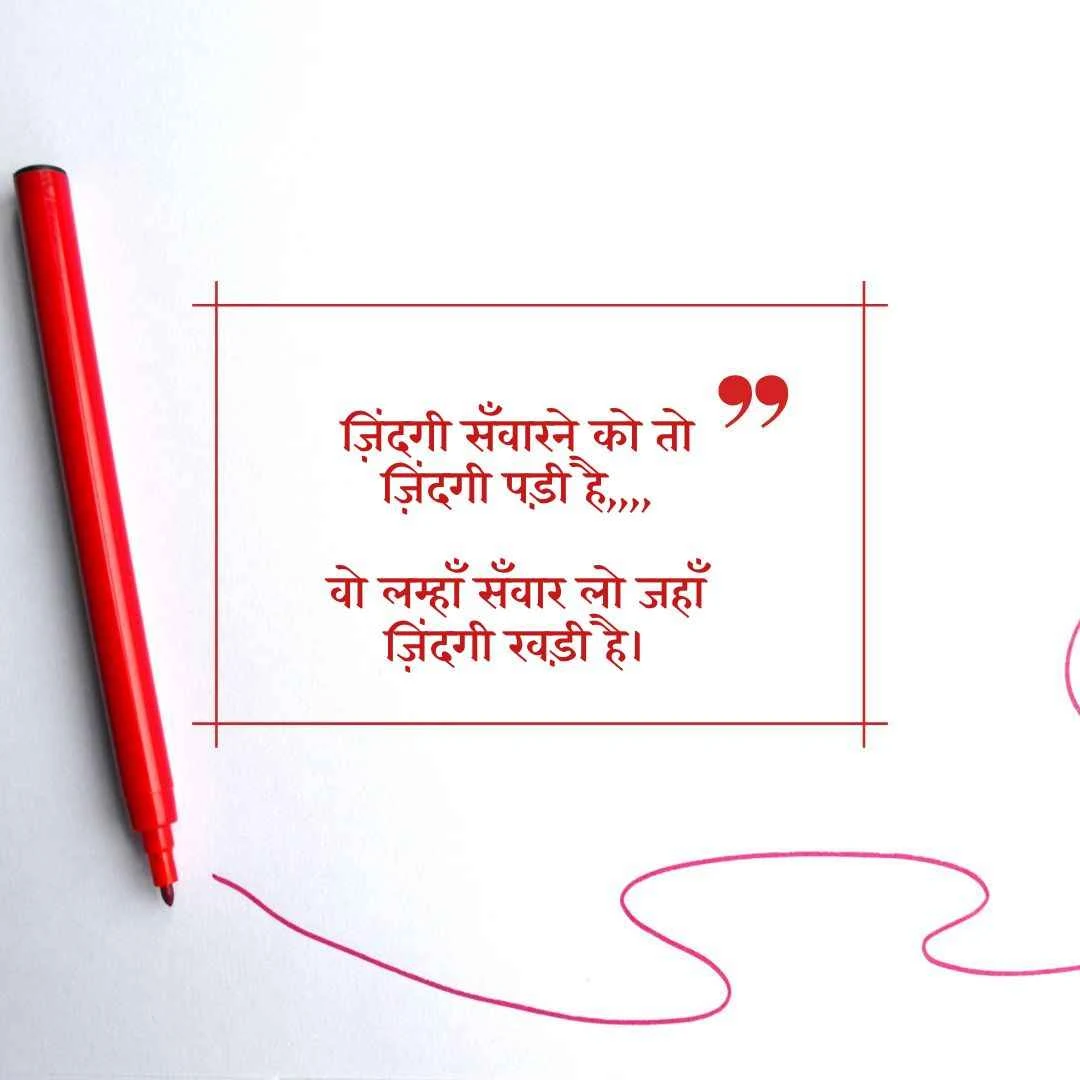 ज़िंदगी सँवारने को तो ”
ज़िंदगी पड़ी है,,,,
वो लम्हाँ सँवार लो जहाँ
ज़िंदगी खड़ी है।